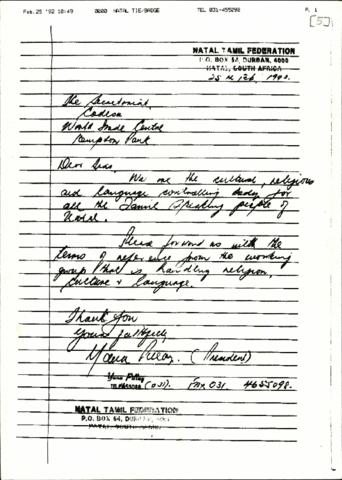 Feb. 25 '92 10:49 0000 NATAL TIE/BADGE TEL 031-455098 P. 1
[5]
NATAL TAMIL FEDERATION
P.O. BOX 54, DURBAN, 4000
NATAL, SOUTH AFRICA
25 th Feb. 1992.
The Secretariat,
Codesa
World Trade Centre
Kempton Park
Dear Sirs,
We are the cultural, religious
and language controlling body for
all the Tamil speaking people of
Natal.
Please forward us with the
terms of reference from the working
group that is handling religion,
culture & language.
Thank you
Yours faithfully
Pillay. (President)
Pillay
(031) Fax 031. 4655098.
NATAL TAMIL FEDERATION
P.O. BOX 54, DURBAN, 4000
NATAL, SOUTH AFRICA